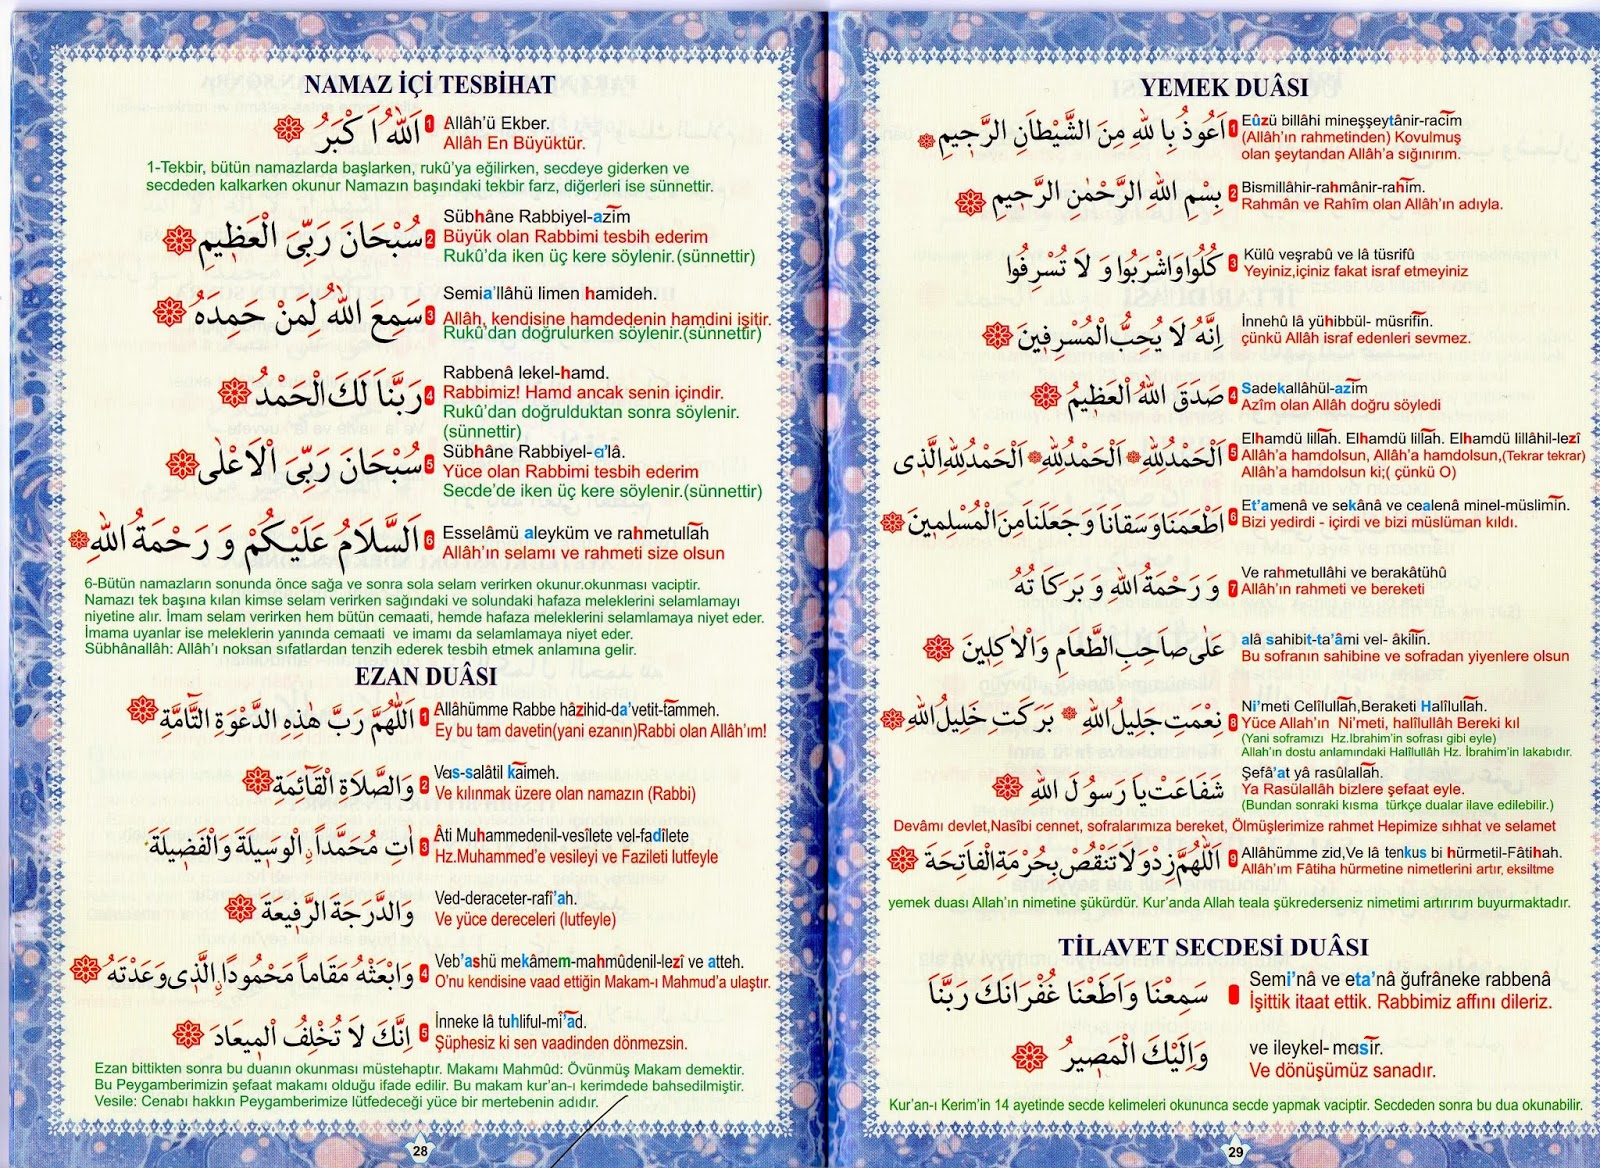 NAMAZ İÇİ TESBİHAT
اَللّٰهُ اَكْبَرُ
1 Allâh'ü Ekber.
Allâh En Büyüktür.
1-Tekbir, bütün namazlarda başlarken, rukû'ya eğilirken, secdeye giderken ve
secdeden kalkarken okunur Namazın başındaki tekbir farz, diğerleri ise sünnettir.
سُبْحَانَ رَبِّىَ الْعَظ۪يمِ
2 Sübhâne Rabbiyel-azîm
Büyük olan Rabbimi tesbih ederim
Rukû'da iken üç kere söylenir.(sünnettir)
سَمِعَ اللّٰهُ لِمَنْ حَمِدَهُ
3 Semia'llâhü limen hamideh.
Allâh, kendisine hamdedenin hamdini işitir.
Rukû'dan doğrulurken söylenir.(sünnettir)
رَبَّنَا لَكَ الْحَمْدُ
4 Rabbenâ lekel-hamd.
Rabbimiz! Hamd ancak senin içindir.
Rukû'dan doğrulduktan sonra söylenir.
(sünnettir)
سُبْحَانَ رَبِّىَ الْاَعْلٰى
5 Sübhâne Rabbiyel-a'lâ.
Yüce olan Rabbimi tesbih ederim
Secde'de iken üç kere söylenir.(sünnettir)
اَلسَّلَامُ عَلَيْكُمْ وَ رَحْمَةُ اللّٰهِ
6 Esselâmü aleyküm ve rahmetullah
Allâh'ın selamı ve rahmeti size olsun
6-Bütün namazların sonunda önce sağa ve sonra sola selam verirken okunur.okunması vaciptir.
Namazı tek başına kılan kimse selam verirken sağındaki ve solundaki hafaza meleklerini selamlamayı
niyetine alır. İmam selam verirken hem bütün cemaati, hemde hafaza meleklerini selamlamaya niyet eder.
İmama uyanlar ise meleklerin yanında cemaati ve imamı da selamlamaya niyet eder.
Sübhânallâh: Allâh'ı noksan sıfatlardan tenzih ederek tesbih etmek anlamına gelir.
EZAN DUÂSI
اَللّٰهُمَّ رَبَّ هٰذِهِ الدَّعْوَةِ التَّآمَّةِ
1 Allâhümme Rabbe hâzihid-da'vetit-tammeh.
Ey bu tam davetin(yani ezanın)Rabbi olan Allâh'ım!
وَالصَّلَاةِ الْقَآئِمَةِ
2 Vas-salâtil kaimeh.
Ve kılınmak üzere olan namazın (Rabbi)
اٰتِ مُحَمَّداًۨ الْوَس۪يلَةَ وَالْفَض۪يلَةَ
3 Âti Muhammedenil-vesîlete vel-fadîlete
Hz.Muhammed'e vesileyi ve Fazileti lutfeyle
وَالدَّرَجَةَ الرَّف۪يعَةَ
Ved-deraceter-rafî'ah.
Ve yüce dereceleri (lutfeyle)
وَابْعَثْهُ مَقَاماً مَحْمُوداًۨ الَّذ۪ى وَعَدْتَهُ
4 Veb'ashü mekâmem-mahmûdenil-lezî ve atteh.
O'nu kendisine vaad ettiğin Makam-ı Mahmud'a ulaştır.
اِنَّكَ لَا تُخْلِفُ الْم۪يعَادَ
5 İnneke lâ tuhliful-mî'ad.
Şüphesiz ki sen vaadinden dönmezsin.
Ezan bittikten sonra bu duanın okunması müstehaptır. Makamı Mahmûd: Övünmüş Makam demektir.
Bu Peygamberimizin şefaat makamı olduğu ifade edilir. Bu makam kur'an-ı kerimdede bahsedilmiştir.
Vesile: Cenabı hakkın Peygamberimize lütfedeceği yüce bir mertebenin adıdır.
28
YEMEK DUÂSI
اَعُوذُ بِاللّٰهِ مِنَ الشَّيْطَانِ الرَّج۪يمِ
1 Eûzü billâhi mineşşeytânir-racîm
(Allâh'ın rahmetinden) Kovulmuş
olan şeytandan Allâh'a sığınırım.
بِسْمِ اللّٰهِ الرَّحْمٰنِ الرَّح۪يمِ
2 Bismillâhir-rahmânir-rahîm.
Rahmân ve Rahîm olan Allâh'ın adıyla.
كُلُوا وَاشْرَبُوا وَ لَا تُسْرِفُوا
3 Külû veşrabû ve lâ tüsrifû
Yeyiniz,içiniz fakat israf etmeyiniz
اِنَّهُ لَا يُحِبُّ الْمُسْرِف۪ينَ
İnnehû lâ yühibbül- müsrifîn.
çünkü Allâh israf edenleri sevmez.
صَدَقَ اللّٰهُ الْعَظ۪يمُ
4 Sadekallâhül-azîm
Azîm olan Allâh doğru söyledi
اَلْحَمْدُ لِلّٰهِ اَلْحَمْدُ لِلّٰهِ اَلْحَمْدُ لِلّٰهِ الَّذ۪ى
5 Elhamdü lillah. Elhamdü lillah. Elhamdü lillâhil-lezî
Allâh'a hamdolsun, Allâh'a hamdolsun,(Tekrar tekrar)
Allâh'a hamdolsun ki;( çünkü O)
اَطْعَمَنَا وَسَقَانَا وَ جَعَلَنَا مِنَ الْمُسْلِم۪ينَ
6 Et'amenâ ve sekânâ ve cealenâ minel-müslimîn.
Bizi yedirdi - içirdi ve bizi müslüman kıldı.
وَ رَحْمَةُ اللّٰهِ وَ بَرَكَاتُهُ
7 Ve rahmetullâhi ve berakâtühû
Allâh'ın rahmeti ve bereketi
عَلٰى صَاحِبِ الطَّعَامِ وَالْاٰكِل۪ينَ
alâ sahibit-ta'âmi vel- âkilîn.
Bu sofranın sahibine ve sofradan yiyenlere olsun
نِعْمَتِ جَل۪يلُ اللّٰهِ بَرَكَتِ خَل۪يلُ اللّٰهِ
8 Ni'meti Celîlullah,Beraketi Halîlullah.
Yüce Allah'ın Ni'meti, halîlullâh Bereki kıl
(Yani soframızı Hz.Ibrahim'in sofrası gibi eyle)
Allah'ın dostu anlamındaki Halîlullâh Hz. İbrahim'in lakabıdır.
شَفَاعَتْ يَا رَسُولَ اللّٰهِ
Şefâ'at yâ rasûlallah.
Ya Rasülallâh bizlere şefaat eyle.
(Bundan sonraki kısma türkçe dualar ilave edilebilir.)
Devâmı devlet,Nasîbi cennet, sofralarımıza bereket, Ölmüşlerimize rahmet Hepimize sıhhat ve selamet
اَللّٰهُمَّ زِدْ وَلَا تَنْقُصْ بِحُرْمَةِ الْفَاتِحَةِ
9 Allâhümme zid,Ve lâ tenkus bi hürmetil-Fâtihah.
Allâh'ım Fâtiha hürmetine nimetlerini artır, eksiltme
yemek duası Allah'ın nimetine şükürdür. Kur'anda Allah teala şükrederseniz nimetimi artırırım buyurmaktadır.
TİLAVET SECDESİ DUÂSI
سَمِعْنَا وَاَطَعْنَا غُفْرَانَكَ رَبَّنَا
Semi'nâ ve eta'nâ ğufrâneke rabbenâ
İşittik itaat ettik. Rabbimiz affını dileriz.
وَاِلَيْكَ الْمَص۪يرُ
ve ileykel- masîr.
Ve dönüşümüz sanadır.
Kur'an-ı Kerim'in 14 ayetinde secde kelimeleri okununca secde yapmak vaciptir. Secdeden sonra bu dua okunabilir.
29